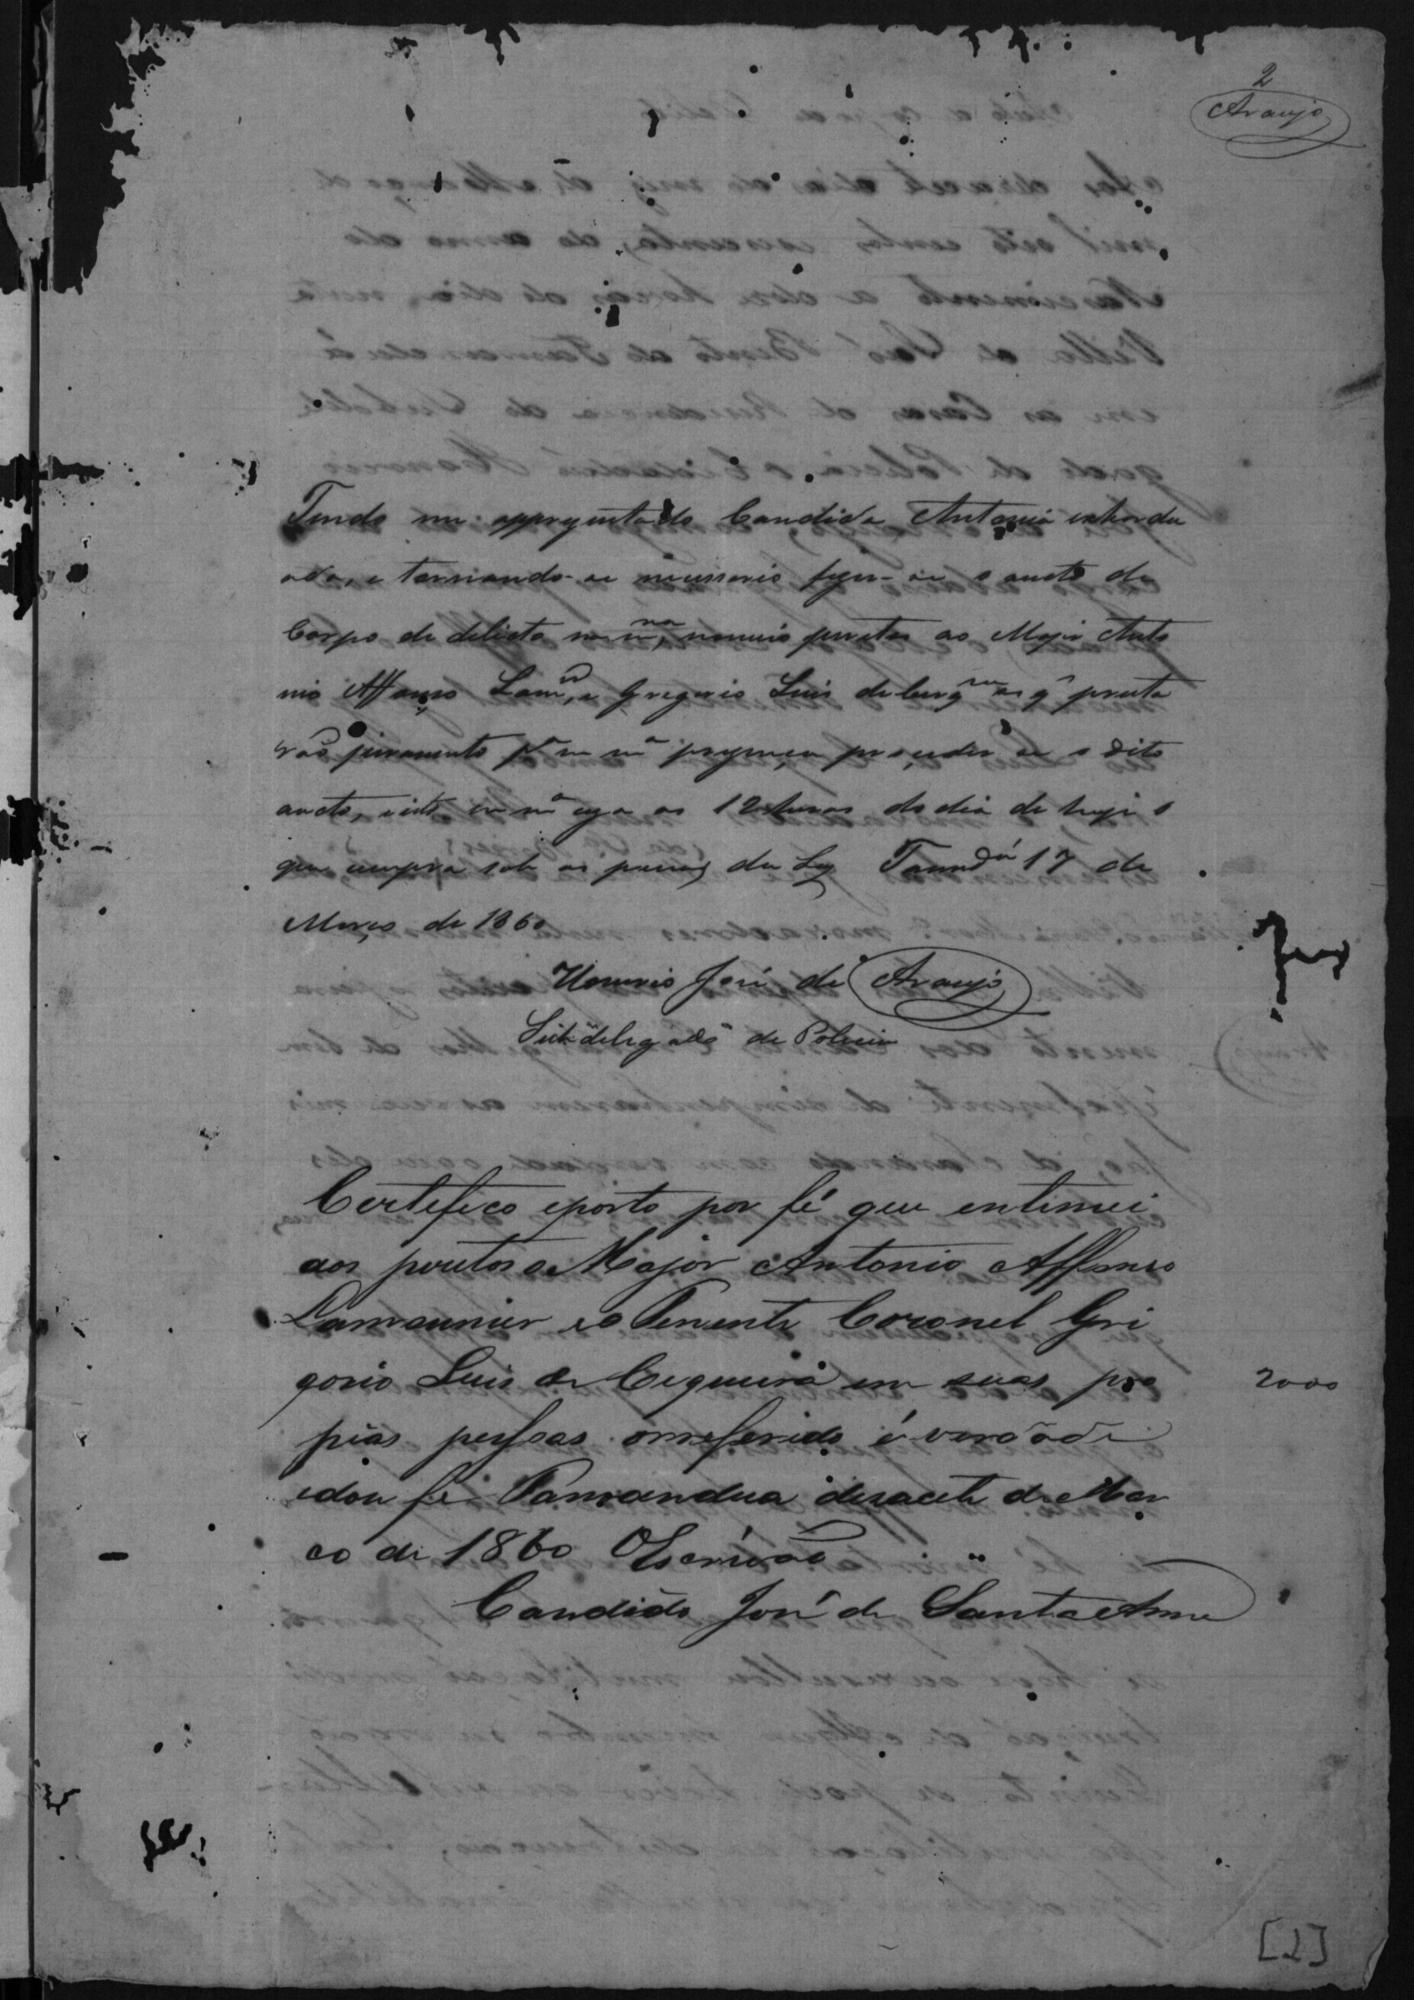 2
Araujo
Tendo me appresentado Candida Antonia esbordu
ada, e tornando-se necessario fazer-se o aucto de
Corpo de delicto na m.ma, nomeio peritos ao Major Anto
nio Affonso Lam.er, e Gregorio Luis de Cerq.ra os q' presta
rão juramento p.a em m.a prezença proceder se o dito
aucto, e isto em m.a caza as 12 horas do dia de hoje o
que cumpra sob as penas da Ley Tamd.á 17 de
Março de 1860
Honorio José de Araujo
Subdelegado de Policia
Certefico eporto por fé que entimei
aos peritos o Major Antonio Affonso
Lamounier eo Tenente Coronel Gri
gorio Luis de Cerqueira em suas pro
2000
prias pessoas orreferido é verdade
edou fé Tamandua desacete de Mar
co de 1860 OEscrivão
Candido José de Santa Anna
[2]